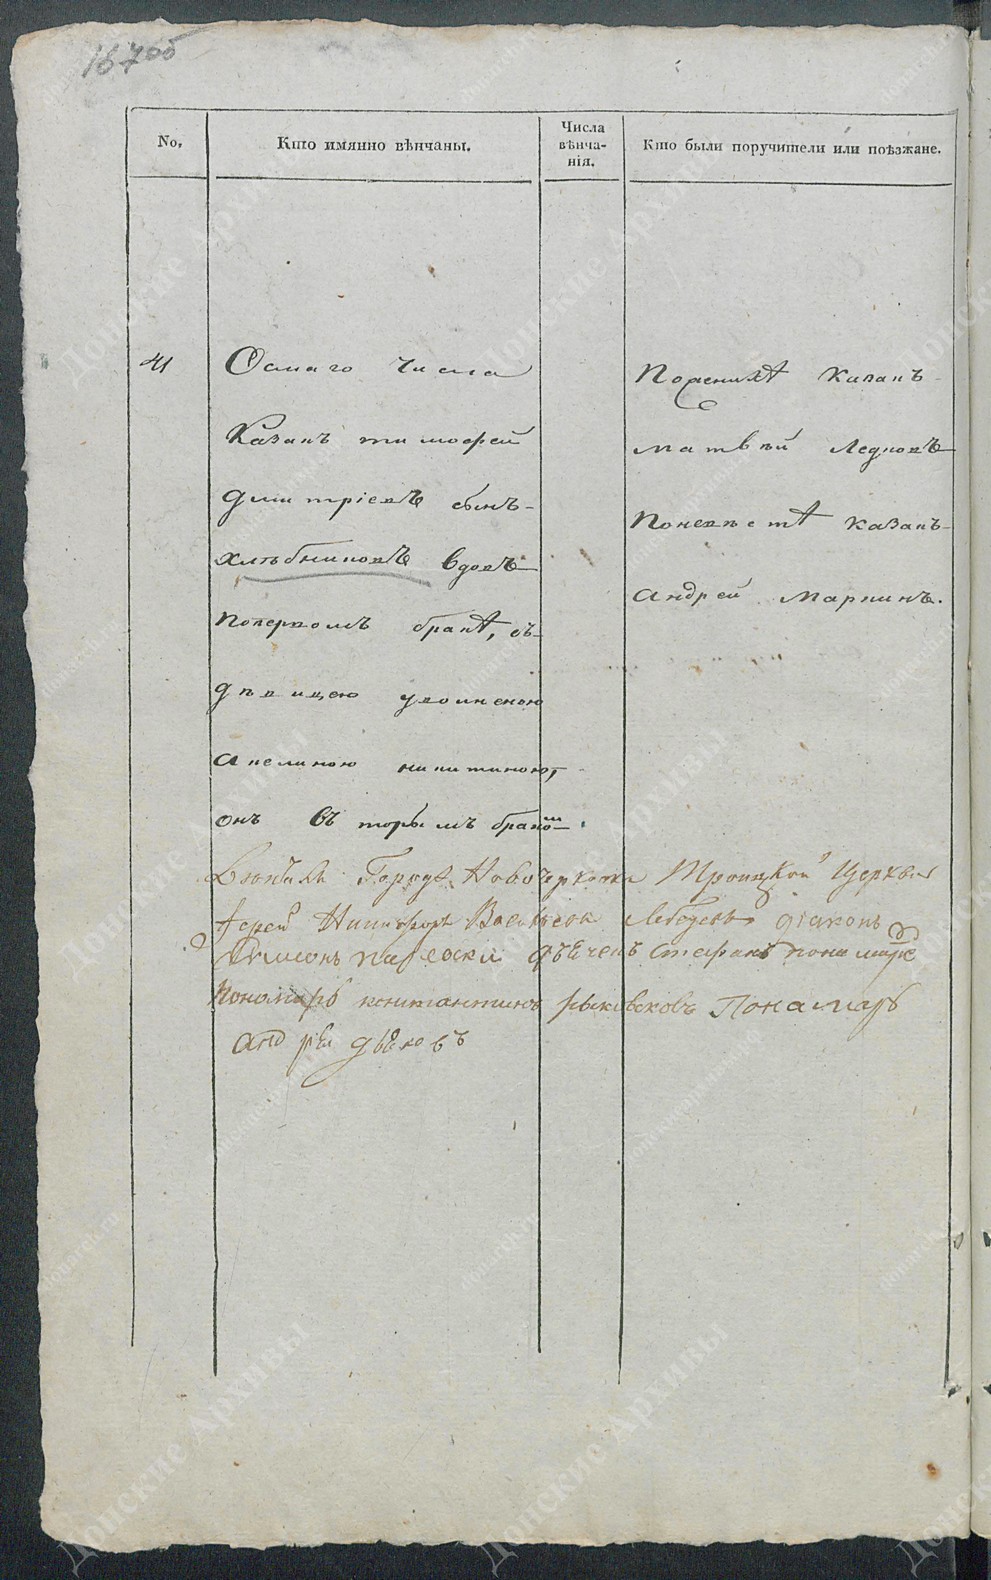 167об
No.
Кто имянно вѣнчаны.
Числа
вѣнча-
нія.
Кто были поручители или поѣзжане.
41
Осмаго числа
Казакъ тимофей
дмитріевъ сынъ
хлѣбниковъ вдовъ
поперьвомъ бракѣ, съ
дѣвицею
акелиною никитиною,
онъ вторымъ бракомъ
Поженихѣ казакъ
матвѣй Ледновъ
Поневѣстѣ казакъ
андрей маркинъ.
Города Новочеркаска Троицкой Церкви
Іерей Никифоръ Васильевъ Лебедевъ діаконъ
стефанъ
Пономарь константинъ Понамарь
андрей дьяковъ